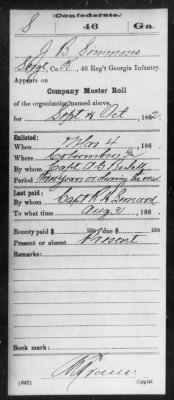 Confederate.
S 46 Ga.
J. B. Simmons
Sergt, Co. K, 46 Reg't Georgia Infantry.
Appears on
Company Muster Roll
of the organization named above,
for Sept & Oct, 186 2.
Enlisted:
When Mar 4, 186 .
Where Columbus Ga
By whom Capt A. E.
Period three years or during the war
Last paid:
By whom Capt R. H. Leonard
To what time Aug 31, 186 .
Bounty paid $ 100; due $ 100
Present or absent Present
Remarks:
Book mark:
(642) Copyist.